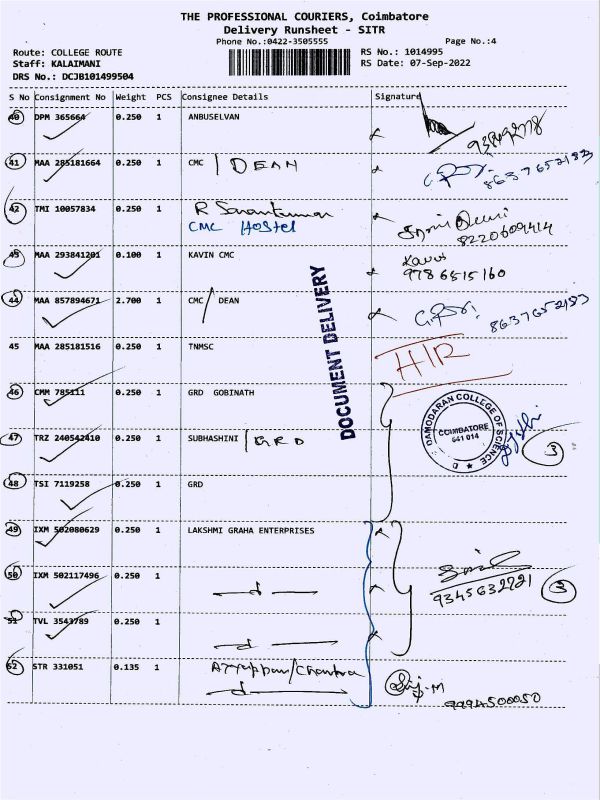 THE PROFESSIONAL COURIERS, Coimbatore
Delivery Runsheet - SITR
Phone No.:0422-3505555 Page No.:4
Route: COLLEGE ROUTE RS No.: 1014995
Staff: KALAIMANI RS Date: 07-Sep-2022
DRS No.: DCJB101499504
S No Consignment No Weight PCS Consignee Details Signature
40 DPM 365664 0.250 1 ANBUSELVAN
41 MAA 285181664 0.250 1 CMC / DEAN 8637652183
42 TMI 10057834 0.250 1 R Saravankumar
CMC Hostel 8220609414
43 MAA 293841201 0.100 1 KAVIN CMC Kavin
9786515160
44 MAA 857894671 2.700 1 CMC / DEAN 8637652183
DOCUMENT DELIVERY
45 MAA 285181516 0.250 1 TNMSC H/R
46 CMM 785111 0.250 1 GRD GOBINATH
DAMODARAN COLLEGE OF SCIENCE
COIMBATORE
641 014
47 TRZ 240542410 0.250 1 SUBHASHINI / GRD 3
48 TSI 7119258 0.250 1 GRD
49 IXM 502080629 0.250 1 LAKSHMI GRAHA ENTERPRISES
50 IXM 502117496 0.250 1 — d — 9345632721 3
51 TVL 3543789 0.250 1 — d —
52 STR 331051 0.135 1 Ayyappan/Chantra
— d — 9994500050